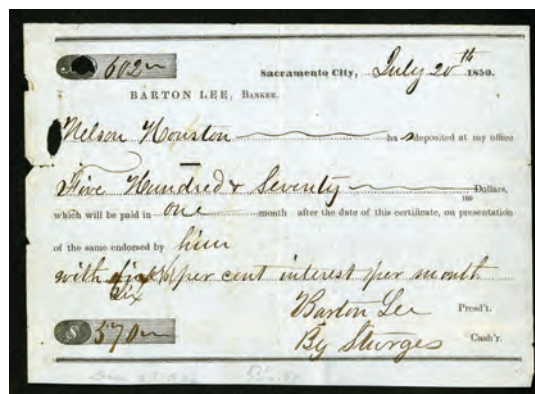 602
Sacramento City, July 20th 1850.
BARTON LEE, Banker.
Nelson Houston has deposited at my office
Five Hundred & Seventy Dollars,
100
which will be paid in one month after the date of this certificate, on presentation
of the same endorsed by him
with per cent interest per month
Six
Barton Lee Presd't.
$ 570 By Sturges Cash'r.